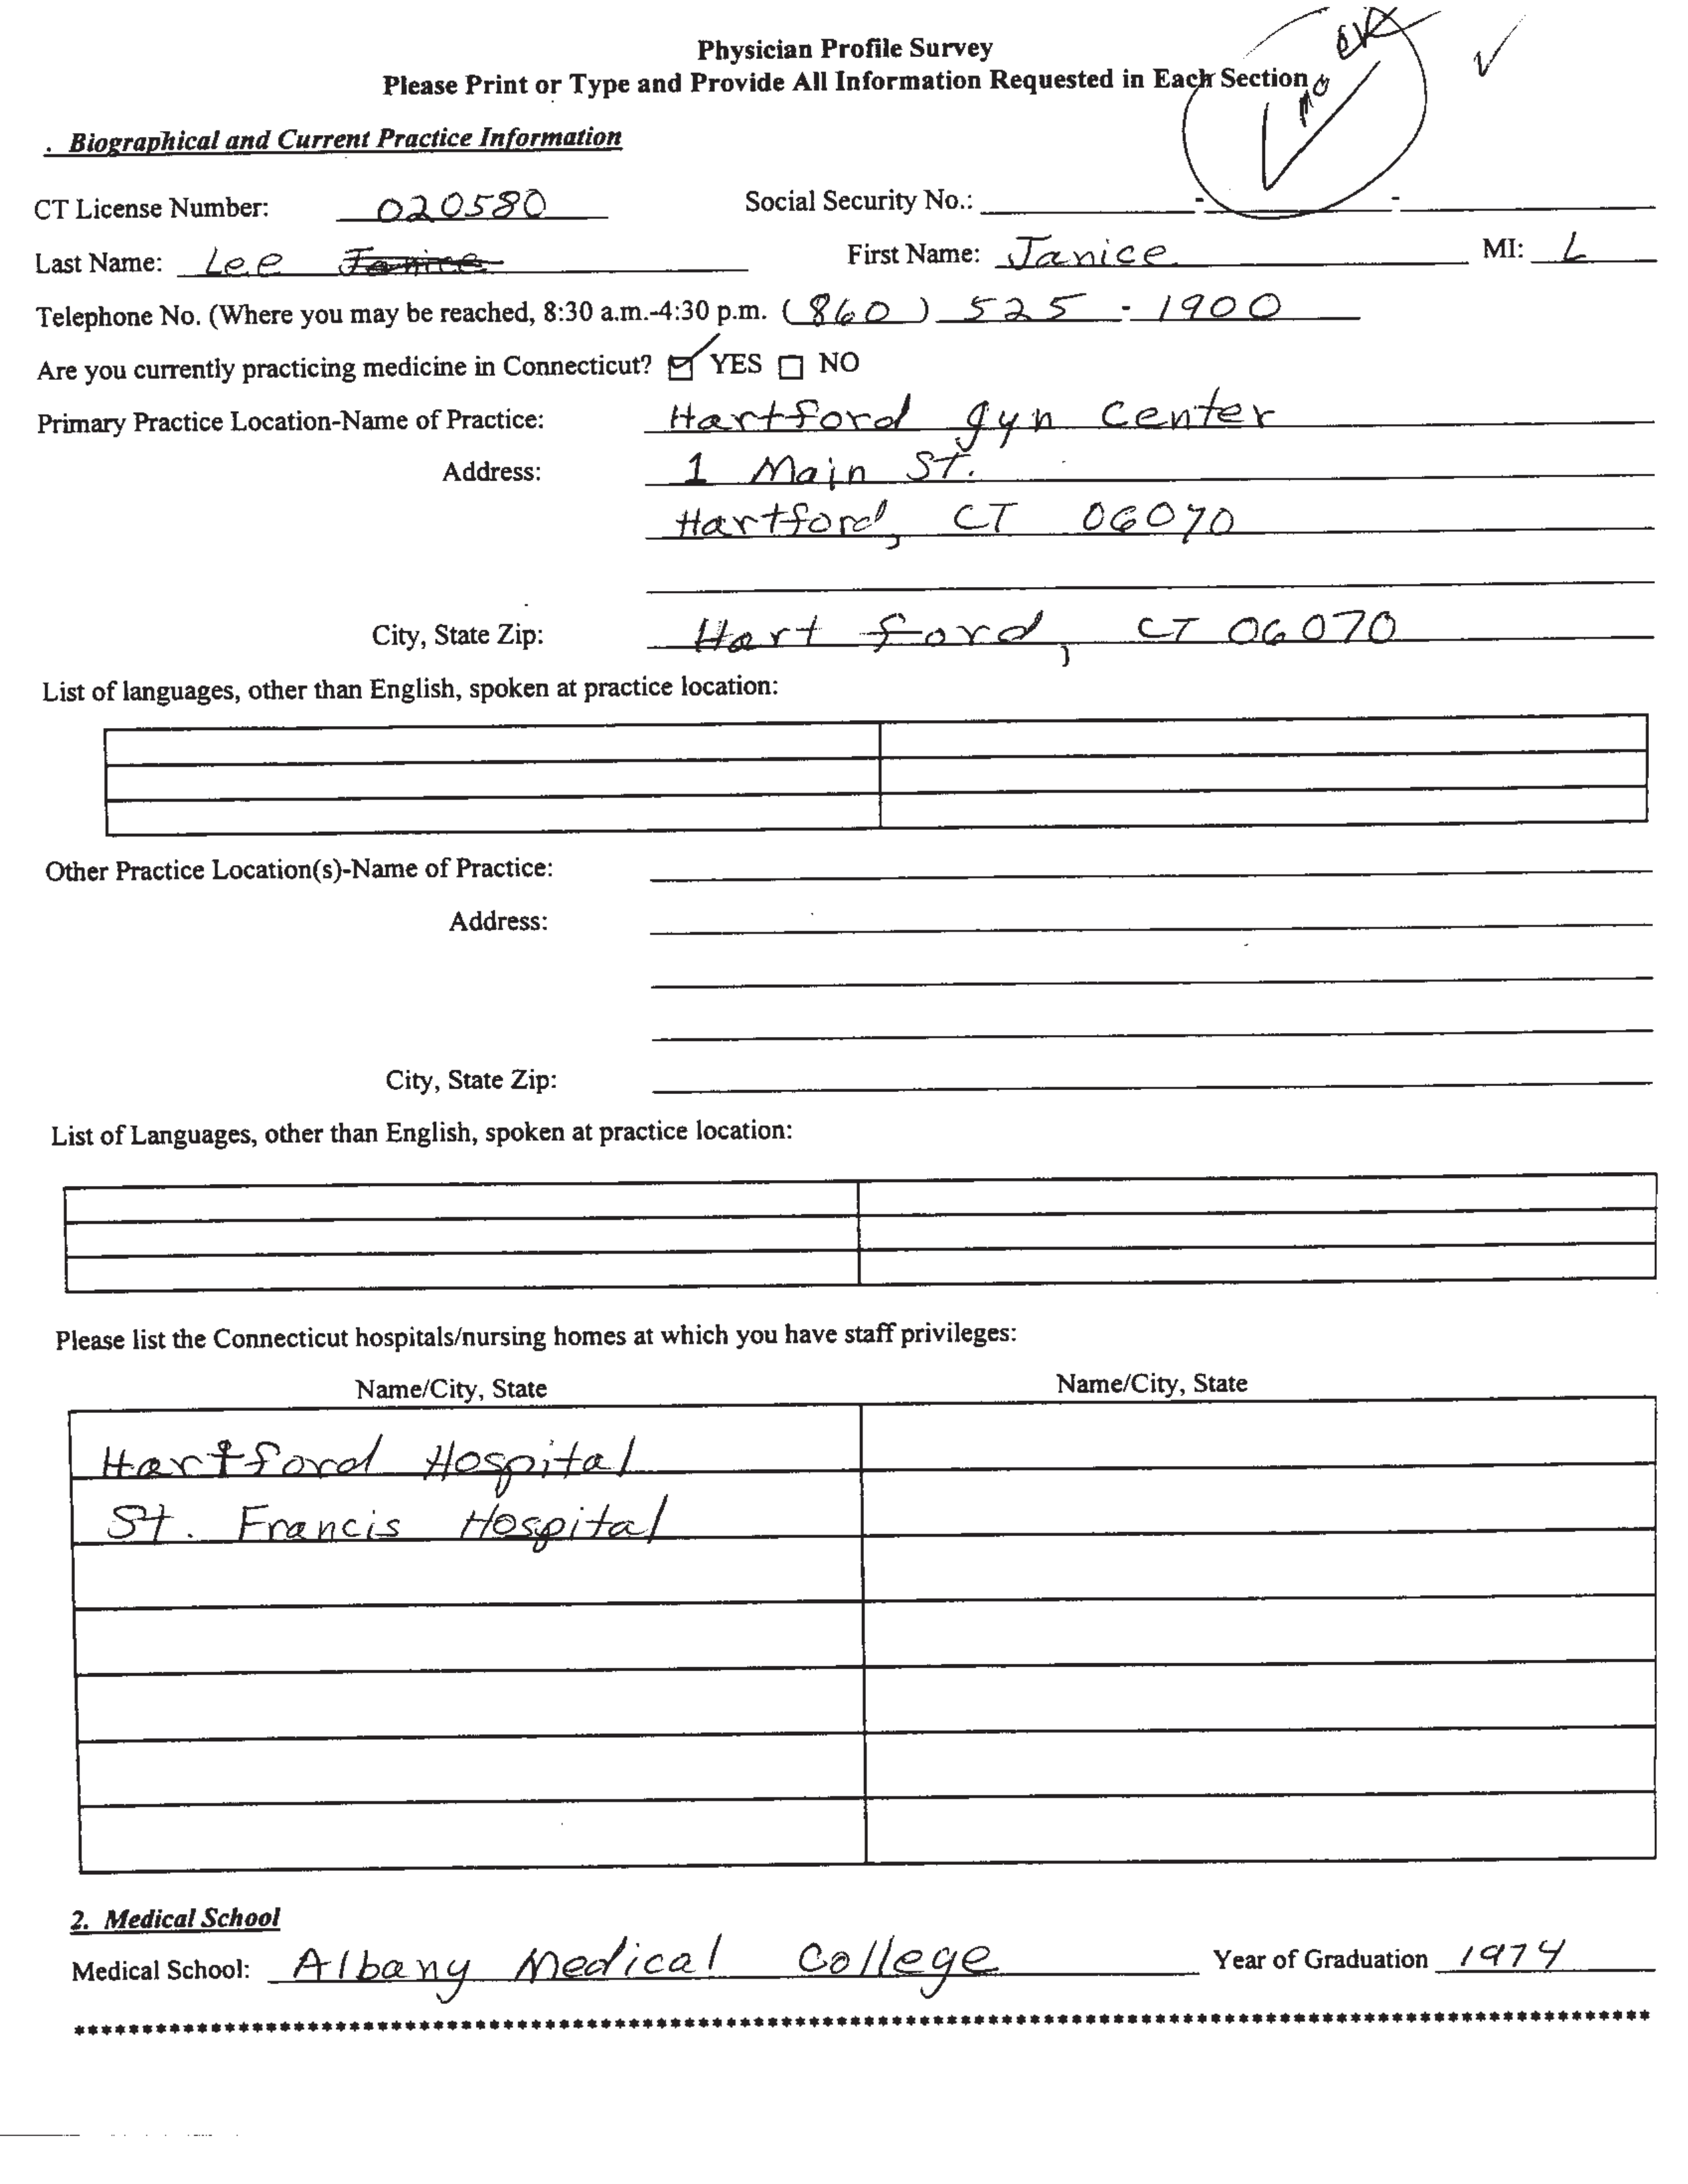 Physician Profile Survey
Please Print or Type and Provide All Information Requested in Each Section
. Biographical and Current Practice Information
CT License Number: 020580 Social Security No.: - -
Last Name: Lee Janice First Name: Janice MI: L
Telephone No. (Where you may be reached, 8:30 a.m.-4:30 p.m. (860) 525 - 1900
Are you currently practicing medicine in Connecticut? ☑ YES ☐ NO
Primary Practice Location-Name of Practice: Hartford gyn center
Address: 1 Main St.
Hartford, CT 06070
City, State Zip: Hartford, CT 06070
List of languages, other than English, spoken at practice location:
Other Practice Location(s)-Name of Practice:
Address:
City, State Zip:
List of Languages, other than English, spoken at practice location:
Please list the Connecticut hospitals/nursing homes at which you have staff privileges:
Name/City, State Name/City, State
Hartford Hospital
St. Francis Hospital
2. Medical School
Medical School: Albany Medical College Year of Graduation 1974